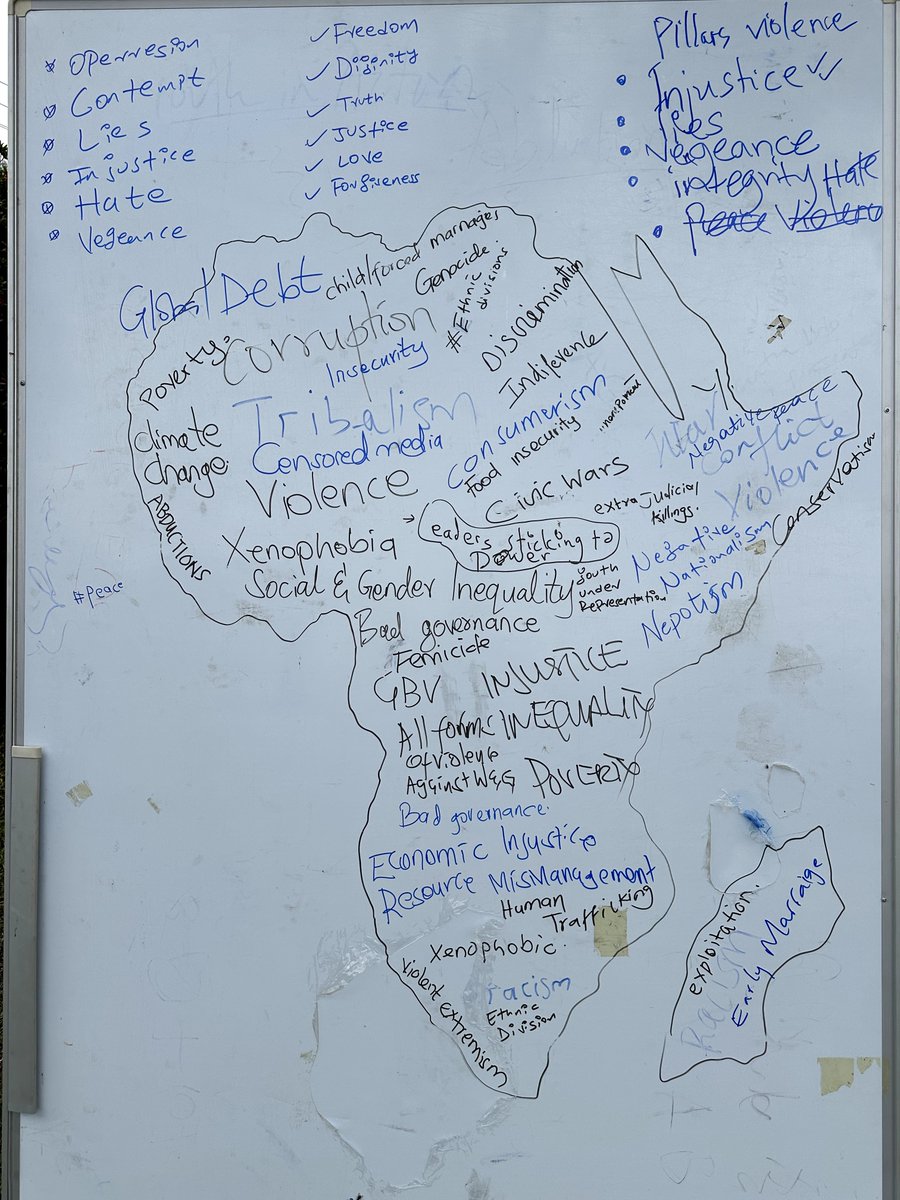 OPerresion
Contempt
Lies
Injustice
Hate
Vegeance
✓ Freedom
✓ Diginity
✓ Truth
✓ Justice
✓ Love
✓ Forgiveness
Pillars violence
Injustice ✓✓
lies
Vegeance
integrity Hate
Peace Violenc
Global Debt
child/forced marriages
Genocide
#Ethnic
divisions
Discrimination
Poverty
Corruption
Insecurity
Indiference
Tribalism
Climate
change
Censored media
consumerism
Food insecurity
War
Negative peace
Conflict
Violence
Violence
Civic Wars
extra judicial
killings.
Conservatism
ABDUCTIONS
Xenophobia
Leaders sticking to
Power
Negative
Nationalism
Nepotism
#Peace
Social & Gender Inequality
Youth
under
Representation
Bad governance
Femicide
GBV INJUSTICE
All forms INEQUALITY
of violence
Against W&G POVERTY
Bad governance.
Economic Injustice
Resource MisManagement
Human
Trafficking
Xenophobic.
Violent extremism
racism
Ethnic
Division
exploitation.
Racism
Early Marraige